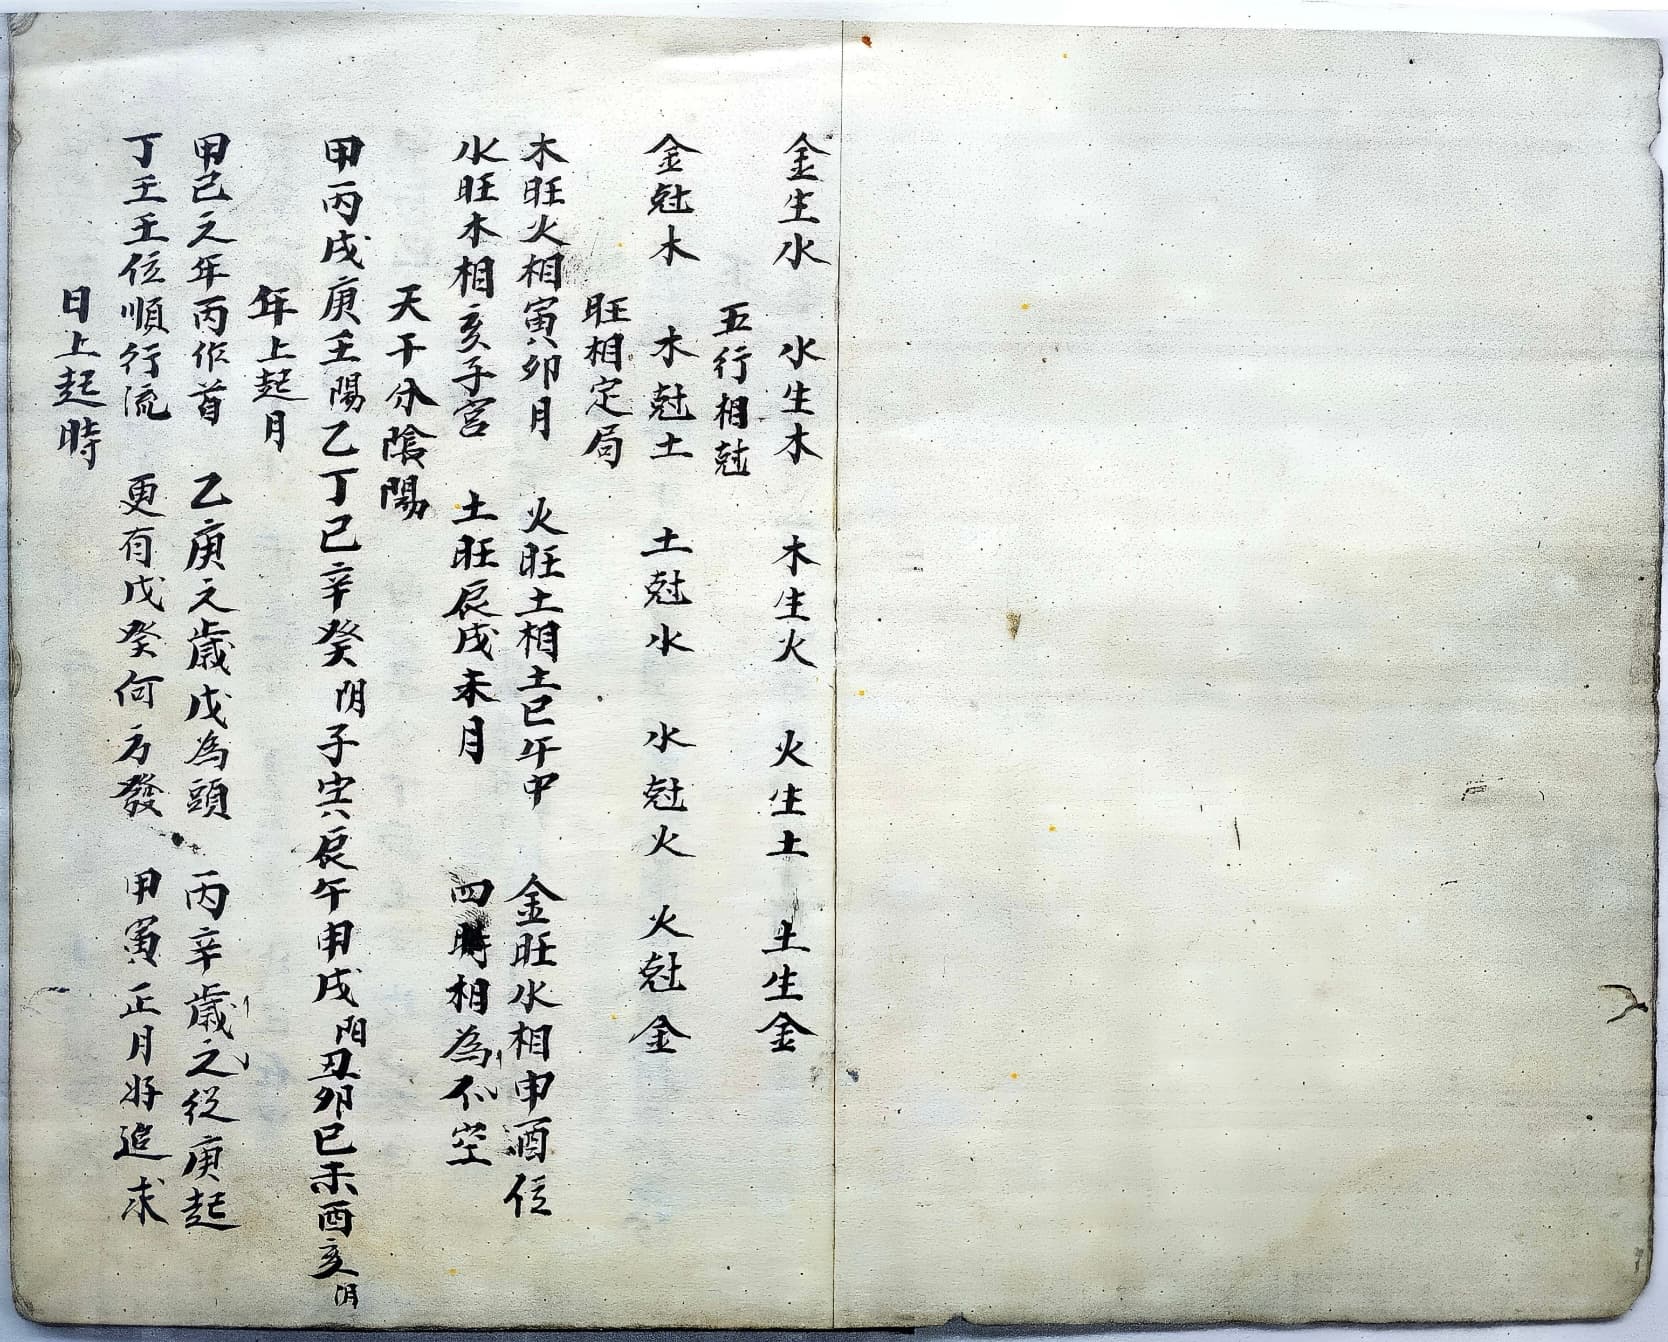 金生水 水生木 木生火 火生土 土生金
五行相尅
金尅木 木尅土 土尅水 水尅火 火尅金
旺相定局
木旺火相寅卯月 火旺土相土巳午中 金旺水相申酉位
水旺木相亥子宮 土旺辰戌未月 四時相為不空
天干分陰陽
甲丙戊庚壬陽乙丁己辛癸阴子寅辰午申戌阳丑卯巳未酉亥阴
年上起月
甲己之年丙作首 乙庚之歲戊為頭 丙辛歲之從庚起
丁壬壬位順行流 更有戊癸何方發 甲寅正月好追求
日上起時